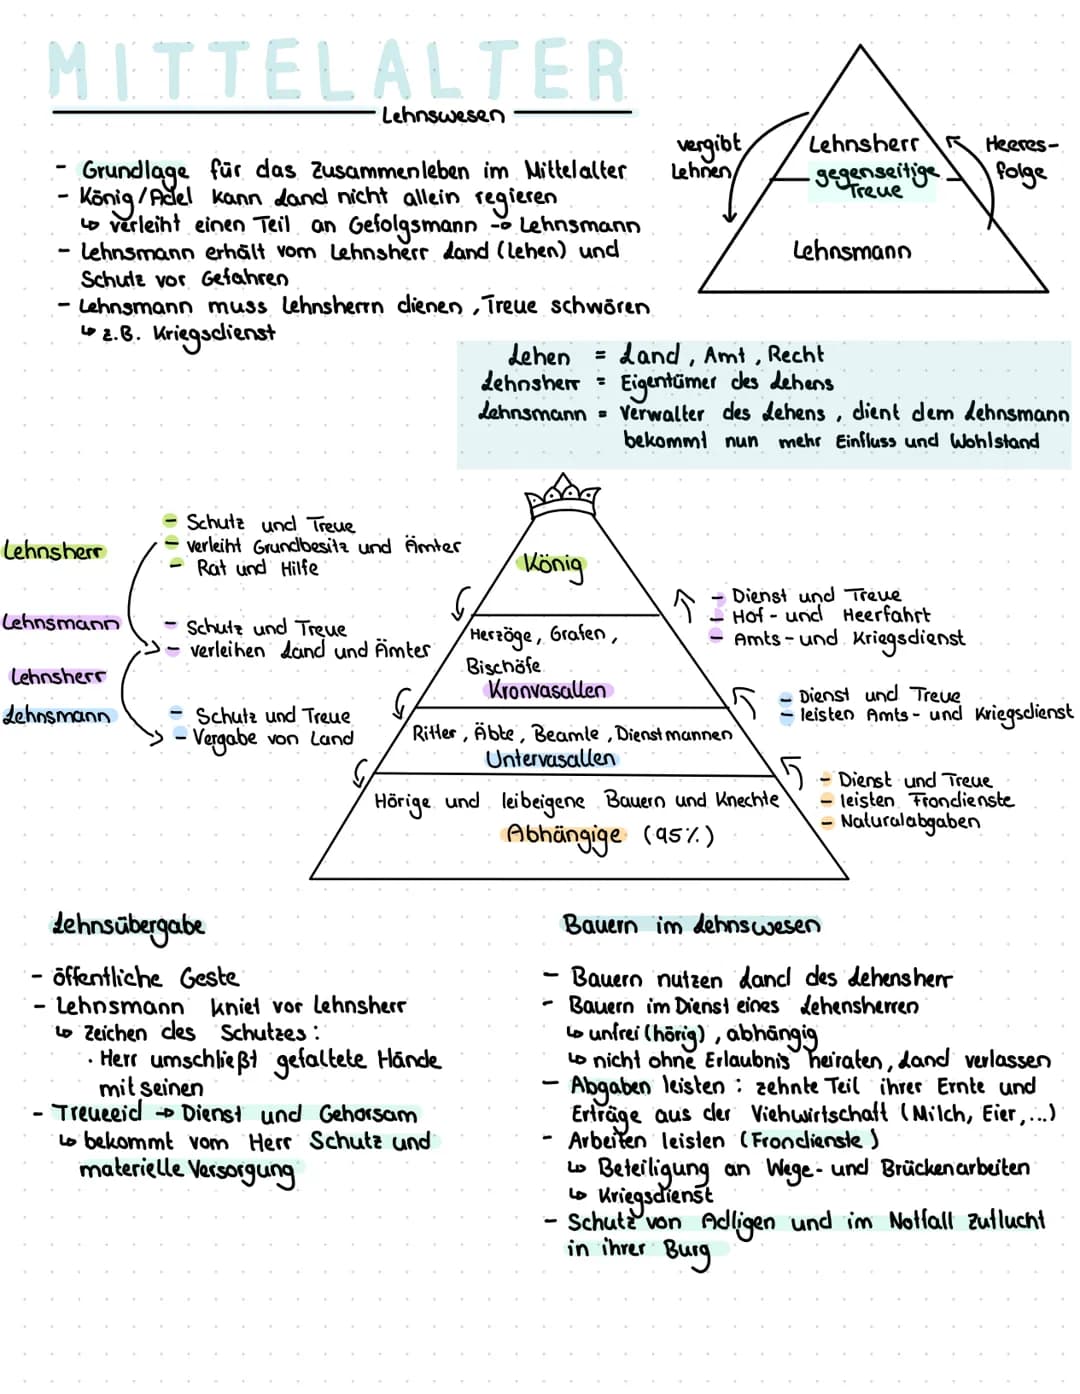 MITTELALTER
Lehnswesen
- Grundlage für das Zusammenleben im Mittelalter
- König/Adel kann Land nicht allein regieren
↳ verleiht einen Teil an Gefolgsmann → Lehnsmann
- Lehnsmann erhält vom Lehnsherr Land (Lehen) und
Schutz vor Gefahren
- Lehnsmann muss Lehnsherrn dienen, Treue schwören
↳ z.B. Kriegsdienst
vergibt
Lehen
Lehnsherr
gegenseitige
Treue
Lehnsmann
Heeres-
folge
Lehen = Land, Amt, Recht
Lehnsherr = Eigentümer des Lehens
Lehnsmann = Verwalter des Lehens, dient dem Lehnsmann
bekommt nun mehr Einfluss und Wohlstand
Lehnsherr
- Schutz und Treue
- verleiht Grundbesitz und Ämter
- Rat und Hilfe
Lehnsmann
- Schutz und Treue
- verleihen Land und Ämter
Lehnsherr
Lehnsmann
- Schutz und Treue
- Vergabe von Land
König
Herzöge, Grafen,
Bischöfe
Kronvasallen
Ritter, Äbte, Beamte, Dienstmannen
Untervasallen
Hörige und leibeigene Bauern und Knechte
Abhängige (95%)
- Dienst und Treue
- Hof- und Heerfahrt
- Amts- und Kriegsdienst
- Dienst und Treue
- leisten Amts- und Kriegsdienst
- Dienst und Treue
- leisten Frondienste
- Naturalabgaben
Lehnsübergabe
- öffentliche Geste
- Lehnsmann kniet vor Lehnsherr
↳ Zeichen des Schutzes:
· Herr umschließt gefaltete Hände
mit seinen
- Treueeid → Dienst und Gehorsam
↳ bekommt vom Herr Schutz und
materielle Versorgung
Bauern im Lehnswesen
- Bauern nutzen Land des Lehensherr
- Bauern im Dienst eines Lehensherren
↳ unfrei (hörig), abhängig
↳ nicht ohne Erlaubnis heiraten, Land verlassen
- Abgaben leisten: zehnte Teil ihrer Ernte und
Erträge aus der Viehwirtschaft (Milch, Eier,...)
- Arbeiten leisten (Frondienste)
↳ Beteiligung an Wege- und Brückenarbeiten
↳ Kriegsdienst
- Schutz von Adligen und im Notfall Zuflucht
in ihrer Burg